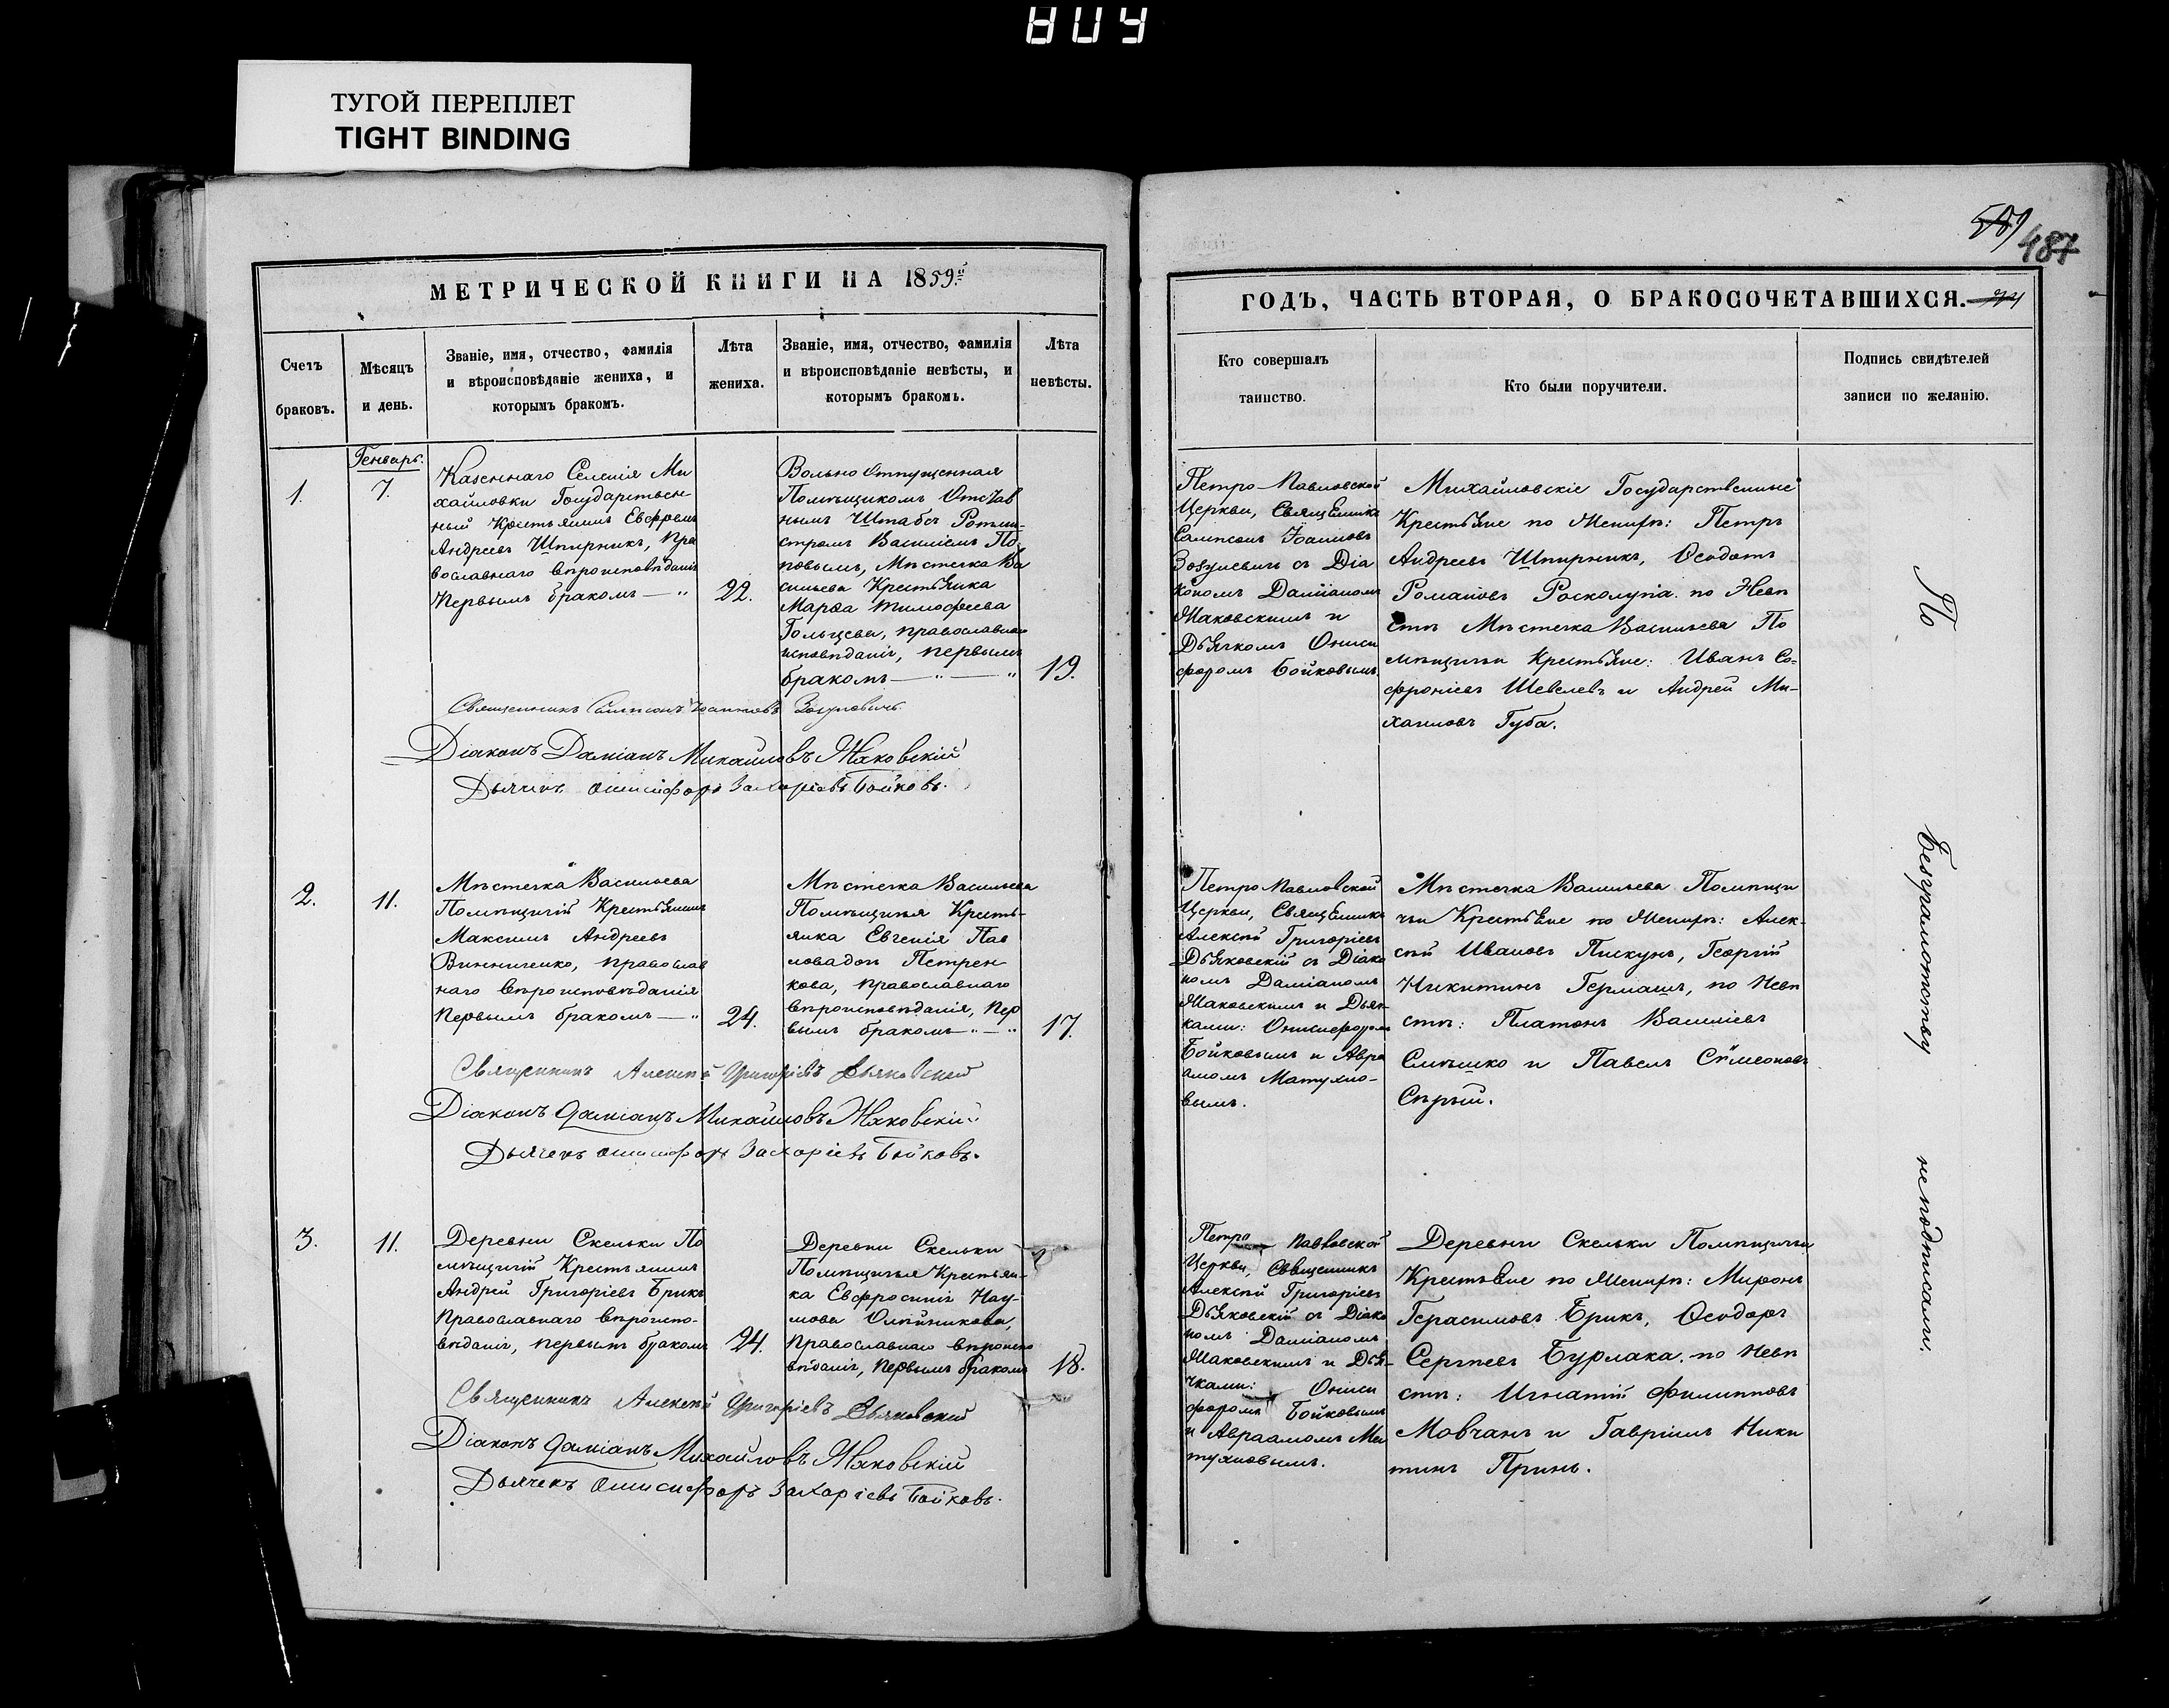 804
ТУГОЙ ПЕРЕПЛЕТ
TIGHT BINDING
МЕТРИЧЕСКОЙ КНИГИ НА 1859й
Счетъ браковъ.
Мѣсяцъ и день.
Званіе, имя, отчество, фамилія
и вѣроисповѣданіе жениха, и
которымъ бракомъ.
Лѣта жениха.
Званіе, имя, отчество, фамилія
и вѣроисповѣданіе невѣсты, и
которымъ бракомъ.
Лѣта невѣсты.
1.
Генварь.
7.
Казеннаго Селенія Ми
хайловки Государствен-
ный Крестьянинъ Евфремъ
Андреевъ Шпирникъ, Пра
вославнаго вѣроисповѣданія
Первымъ бракомъ — "
22.
Вольно Отпущенная
Помѣщикомъ Отстав
нымъ Штабсъ Ротми-
стромъ Василіемъ По-
повымъ, Мѣстечка Ва
сильева Крестьянка
Марѳа Тимофеева
Гольцева, православнаго
исповѣданія, первымъ
бракомъ — " — "
19.
Священникъ Сампсонъ Іоанновъ Зозулевичъ
Діаконъ Даміанъ Михайловъ Маковскій
Дьячекъ Онисифоръ Захаріевъ Бойковъ.
2.
11.
Мѣстечка Васильева
Помѣщичій Крестьянинъ
Максимъ Андреевъ
Винниченко, православ
наго вѣроисповѣданія
Первымъ бракомъ — "
24.
Мѣстечка Васильева
Помѣщичья Кресть-
янка Евгенія Пав
лова дочь Петрен
кова, Православнаго
вѣроисповѣданія, Пер
вымъ бракомъ " — "
17.
Священникъ Алексѣй Григоріевъ Дьяковскій
Діаконъ Даміанъ Михайловъ Маковскій
Дьячекъ Онисифоръ Захаріевъ Бойковъ.
3.
11.
Деревни Скельки По
мѣщичій Крестьянинъ
Андрей Григоріевъ Брикъ
Православнаго вѣроиспо-
вѣданія, первымъ бракомъ
24.
Деревни Скельки
Помѣщичья Крестьян-
ка Евфросинія Нау-
мова Олѣйникова,
Православнаго вѣроиспо
вѣданія, Первымъ бракомъ
18.
Священникъ Алексѣй Григоріевъ Дьяковскій
Діаконъ Даміанъ Михайловъ Маковскій
Дьячекъ Онисифоръ Захаріевъ Бойковъ.
487
ГОДЪ, ЧАСТЬ ВТОРАЯ, О БРАКОСОЧЕТАВШИХСЯ.
Кто совершалъ
таинство.
Кто были поручители.
Подпись свидѣтелей
записи по желанію.
Петро-Павловской
Церкви, Священникъ
Сампсонъ Іоанновъ
Зозулевичъ съ Діа
кономъ Даміаномъ
Маковскимъ и
Дьячкомъ Ониси
форомъ Бойковымъ.
Михайловскіе Государственные
Крестьяне по Женихѣ: Петръ
Андреевъ Шпирникъ, Ѳеодотъ
Романовъ Росколупа. по Невѣ
стѣ Мѣстечка Васильева По
мѣщичьи Крестьяне: Иванъ Со-
фроніевъ Шевелевъ и Андрей Ми-
хайловъ Губа.
Петро Павловской
Церкви, Священникъ
Алексѣй Григоріевъ
Дьяковскій съ Діако
номъ Даміаномъ
Маковскимъ и Дьяч-
ками: Онисифоромъ
Бойковымъ и Авра
амомъ Матухно-
вымъ.
Мѣстечка Васильева Помѣщи
чьи Крестьяне по Женихѣ: Алек-
сѣй Ивановъ Пискунъ, Георгій
Никитинъ Гермашъ, по Невѣ
стѣ: Платонъ Василіевъ
Смѣшко и Павелъ Сѵмеоновъ
Сѣрый.
Петро Павловской
Церкви, Священникъ
Алексѣй Григоріевъ
Дьяковскій съ Діако
номъ Даміаномъ
Маковскимъ и Дья-
чками: Ониси
форомъ Бойковымъ
и Авраамомъ Ма
тухновымъ.
Деревни Скельки Помѣщичьи
Крестьяне по Женихѣ: Миронъ
Герасимовъ Брикъ, Ѳеодоръ
Сергѣевъ Бурлака. по Невѣ
стѣ: Игнатій Филипповъ
Мовчанъ и Гавріилъ Ники
тинъ Принь.
По Безграмотству неподписали.